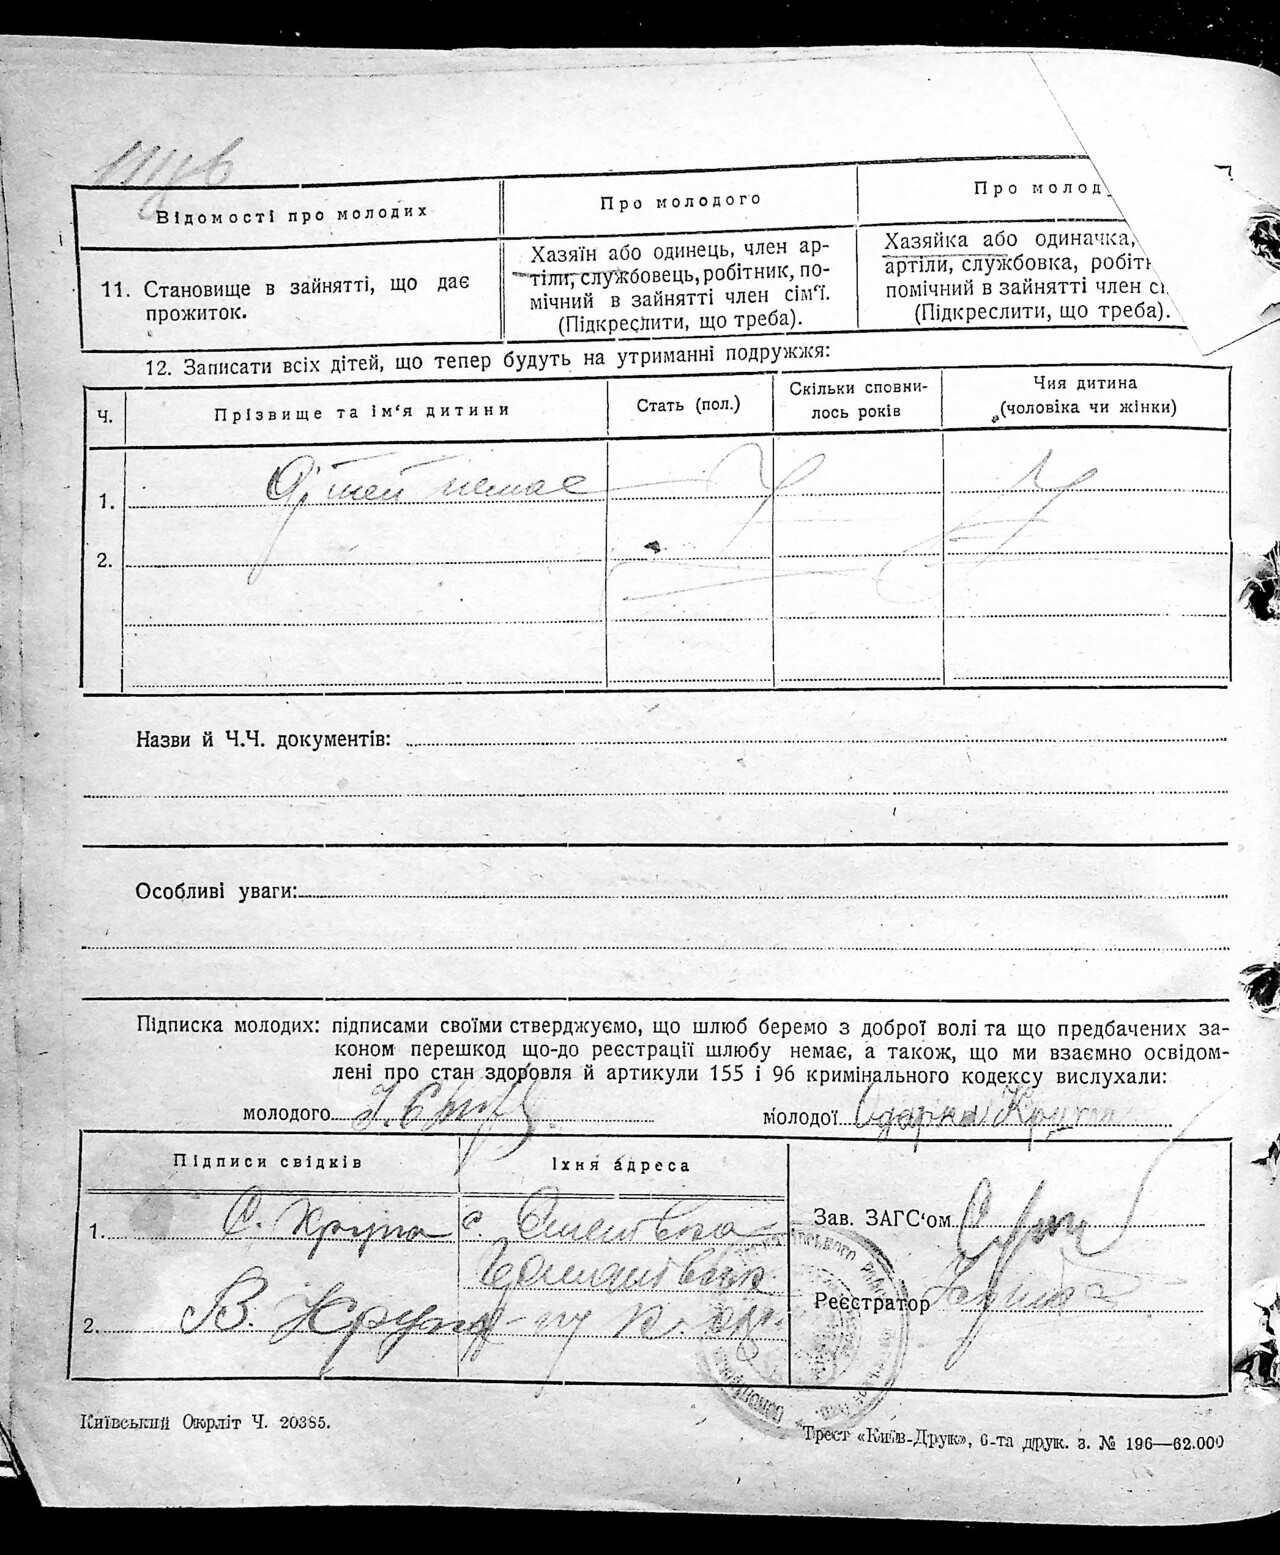 Відомості про молодих
Про молодого
Про молод
11. Становище в зайнятті, що дає
прожиток.
Хазяїн або одинець, член ар-
тіли, службовець, робітник, по-
мічний в зайнятті член сім'ї.
(Підкреслити, що треба).
Хазяйка або одиначка,
артіли, службовка, робітн
помічний в зайнятті член сі
(Підкреслити, що треба).
12. Записати всіх дітей, що тепер будуть на утриманні подружжя:
Ч.
Прізвище та ім'я дитини
Стать (пол.)
Скільки сповни-
лось років
Чия дитина
(чоловіка чи жінки)
1. Дітей немає
2.
Назви й Ч.Ч. документів:
Особливі уваги:
Підписка молодих: підписами своїми стверджуємо, що шлюб беремо з доброї волі та що предбачених за-
коном перешкод що-до реєстрації шлюбу немає, а також, що ми взаємно освідом-
лені про стан здоровля й артикули 155 і 96 кримінального кодексу вислухали:
молодого
молодої Одарка Крупа
Підписи свідків
Їхня адреса
1. С. Крупа с.
2. В. Крупа
Зав. ЗАГС'ом
Реєстратор
Київський Окрліт Ч. 20385.
Трест «Київ-Друк», 6-та друк. з. № 196—62.000